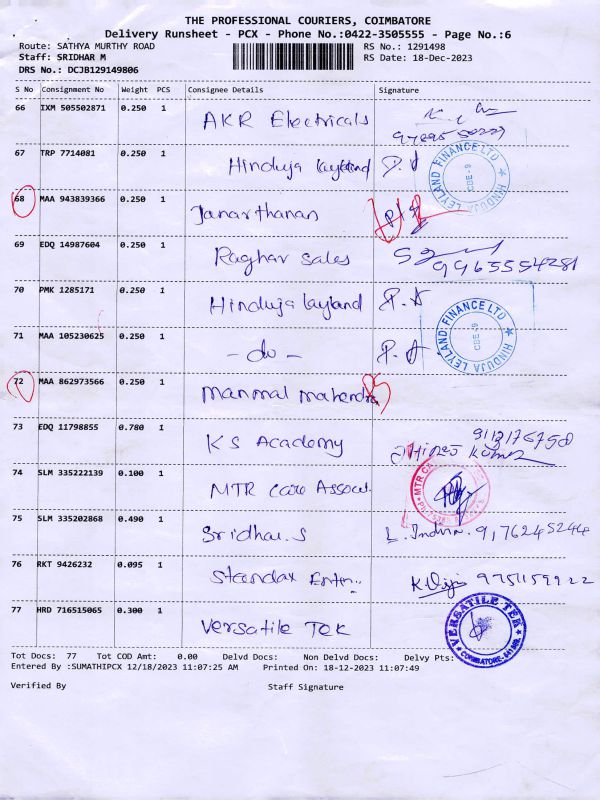 THE PROFESSIONAL COURIERS, COIMBATORE
Delivery Runsheet - PCX - Phone No.:0422-3505555 - Page No.:6
Route: SATHYA MURTHY ROAD RS No.: 1291498
Staff: SRIDHAR M RS Date: 18-Dec-2023
DRS No.: DCJB129149806
S No Consignment No Weight PCS Consignee Details Signature
66 IXM 505502871 0.250 1 AKR Electricals
67 TRP 7714081 0.250 1 Hinduja Leyland P. A
HINDUJA LEYLAND FINANCE LTD CBE-9
68 MAA 943839366 0.250 1 Janarthanan
69 EDQ 14987604 0.250 1 Raghar Sales 9965554281
70 PMK 1285171 0.250 1 Hinduja Layland P. A
71 MAA 105230625 0.250 1 - do - P. A
HINDUJA LEYLAND FINANCE LTD CBE-9
72 MAA 862973566 0.250 1 Manmal Mahendra
73 EDQ 11798855 0.780 1 KS Academy Kumar
74 SLM 335222139 0.100 1 MTR Care Assoct.
75 SLM 335202868 0.490 1 Sridhar. S L. Indra. 9,76245244
76 RKT 9426232 0.095 1 Standax Enter.. 9751159922
77 HRD 716515065 0.300 1 Versatile Tek
VERSATILE TEK COIMBATORE
Tot Docs: 77 Tot COD Amt: 0.00 Delvd Docs: Non Delvd Docs: Delvy Pts:
Entered By :SUMATHIPCX 12/18/2023 11:07:25 AM Printed On: 18-12-2023 11:07:49
Verified By Staff Signature